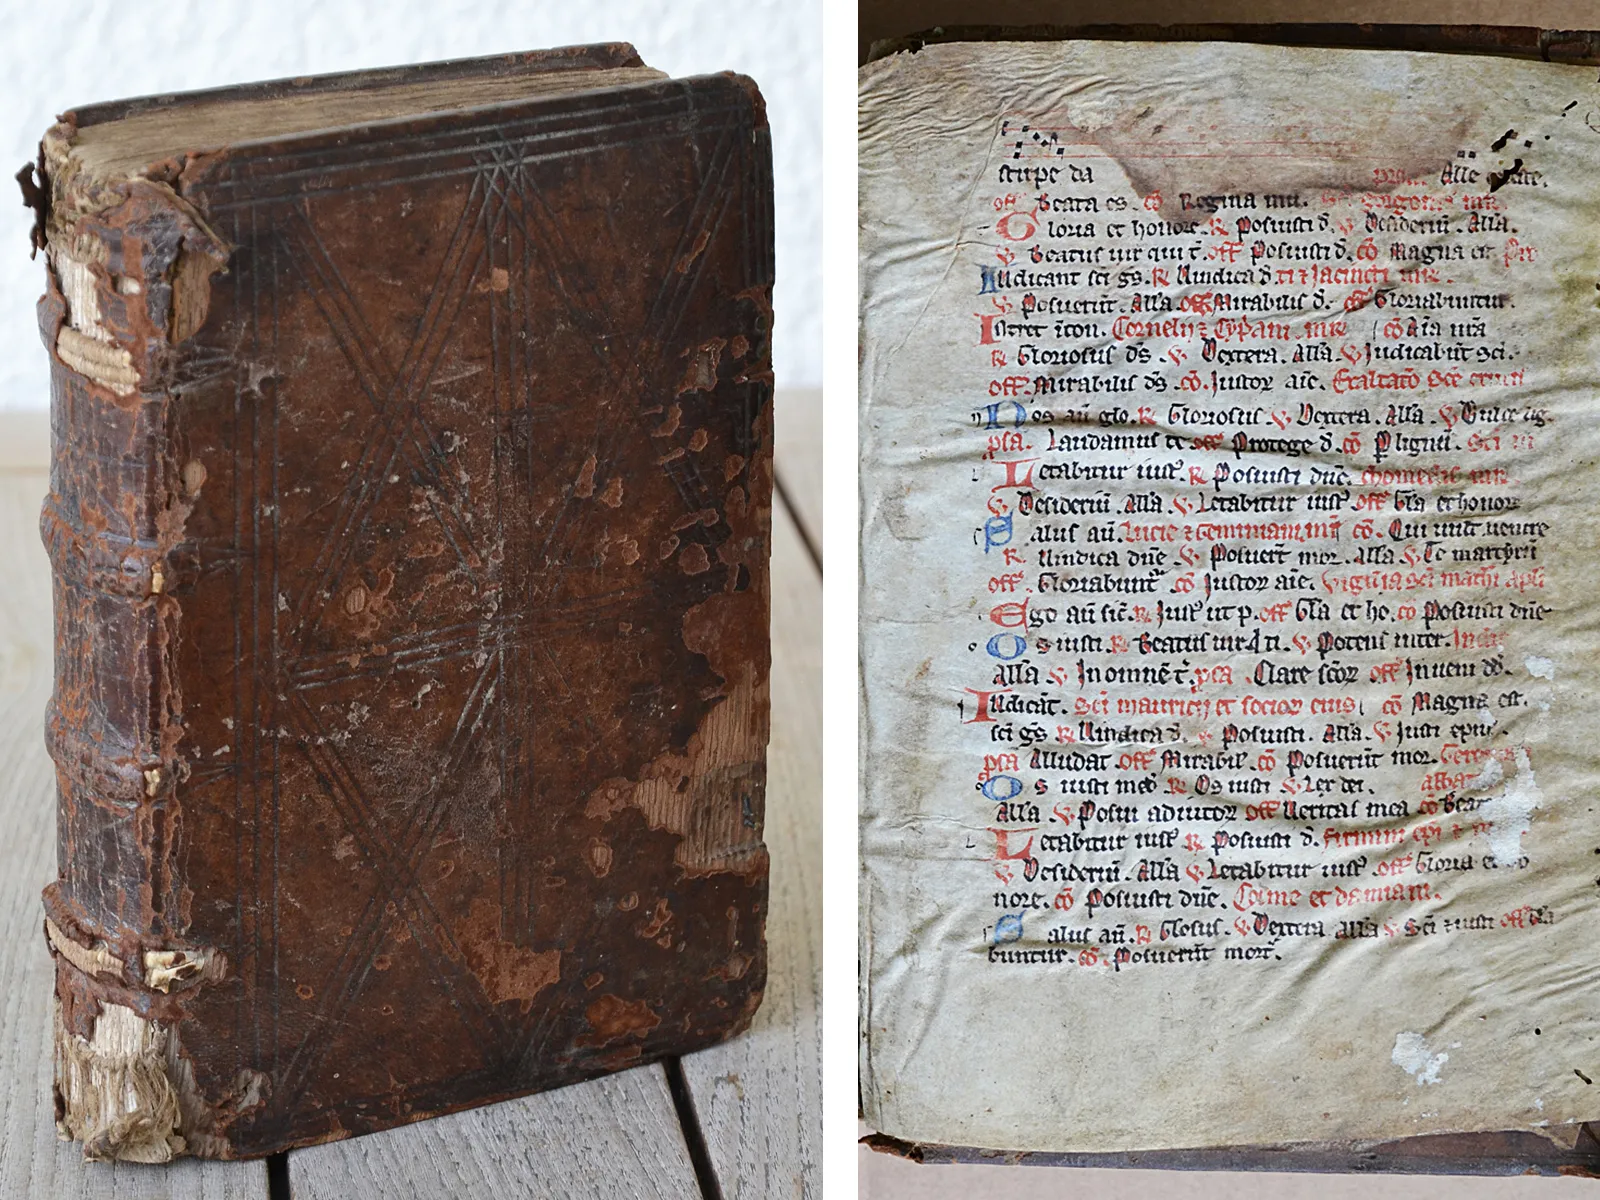 stirpe da Alle
off Beata es. co Regina mu.
Gloria et honore. R Posuisti d. v Desideriu. Alla.
v Beatus uir qui t. off Posuisti d. co Magna est
Iudicant sci gs. R Uindica d. ti et Iacincti mr.
v Posuerut. Alla off Mirabilis d. co Gloriabuntur.
Intret i cou. Cornelij et Cypani. mr co Aia nra
R Gloriosus ds. v Dextera. Alla. v Iudicabut sci.
off Mirabilis ds. co. Iustor aie. Exaltato Sce crucis
Nos au glo. R Gloriosus v Dextera. Alla. v Dulce lig.
psa. Laudamus te off Protege d. co P lignu. Sci
Letabitur iust. R Posuisti due.
v Desideriu. Alla v Letabitur iust off Gla et honore
Salus au. Lucie et Geminiani. mr co. Qui uult uenire
R Uindica dne v Posuert mor. Alla v Te martyru
off Gloriabunt co Iustor aie. Vigilia sci mathi apli
Ego au sic. R Iust ut p. off Gla et ho. co Posuisti dne
Os iusti R Beatus uir q ti. v Potens in ter.
Alla v In omne t. psa Clare scor off Inueni dd.
Iudicat. Sci mauricij et socior eius co Magna est.
sci gs R Uindica d. v Posuisti. Alla. v Iusti epul.
psa Alludat off Mirabil co Posuerut mor.
Os iusti med R Os iusti v Lex dei.
Alla v Posui adiutor off Ueritas mea co Bea
Letabitur iust R Posuisti d. firmini epi
v Desideriu. Alla v Letabitur iust off Gloria et ho
nore. co Posuisti due. Cosme et damiani.
Salus au. R Glosus. v Dextera alla v Sci et iusti off Gla
buntur. co Posuerut mort.